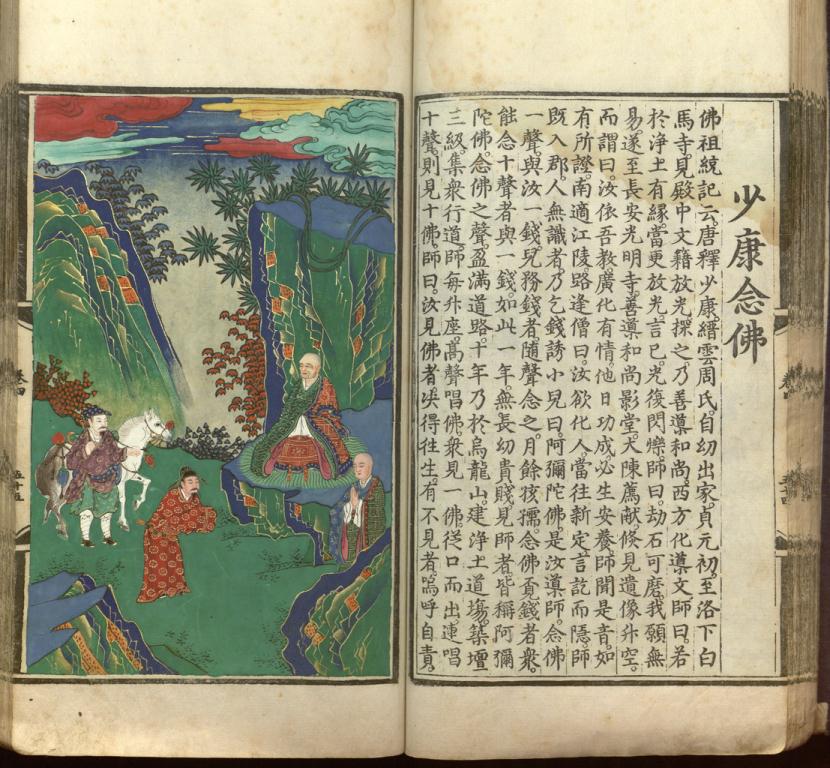 少康念佛
佛祖統記云。唐釋少康。縉雲周氏。自幼出家。貞元初。至洛下白
馬寺。見殿中文籍放光。探之。乃善導和尚。西方化導文。師曰。若
於淨土有緣。當更放光。言已。光復閃爍。師曰。劫石可磨。我願無
易。遂至長安光明寺。善導和尚影堂。大陳薦献。倐見遺像升空。
而謂曰。汝依吾教。廣化有情。他日功成。必生安養。師聞是音。如
有所證。南適江陵。路逢僧曰。汝欲化人。當往新定。言訖而隱。師
既入郡。人無識者。乃乞錢誘小兒曰。阿彌陀佛。是汝導師。念佛
一聲。與汝一錢。兒務錢者。隨聲念之。月餘。孩孺念佛覔錢者衆。
能念十聲者。與一錢。如此一年。無長幼貴賤。見師者。皆稱阿彌
陀佛。念佛之聲。盈滿道路。十年。乃於烏龍山。建淨土道塲。築壇
三級。集衆行道。師每升座。高聲唱佛。衆見一佛。從口而出。連唱
十聲。則見十佛。師曰。汝見佛者。决得往生。有不見者。嗚呼自責。
卷四
五十五